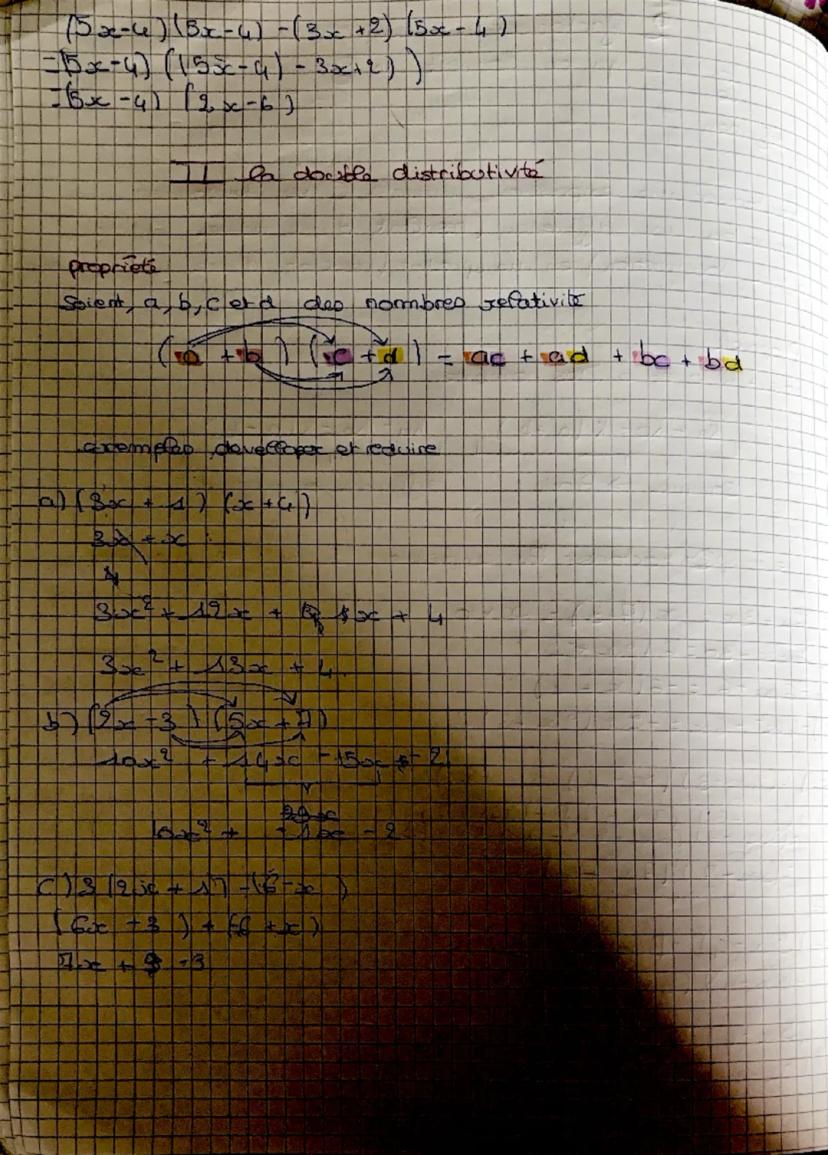 (5x-4)(5x-4) -(3x+2)(5x-4)
=(5x-4)((5x-4) - 3x+2))
=(5x-4)(2x-6)
II la double distributivité
propriété
Soient, a, b, c et d des nombres relativité
(a + b)(c + d) = ac + ad + bc + bd
exemples developer et reduire
a) (3x + 1)(x+4)
3x + x
3x² + 12x + 1x + 4
3x² + 13x + 4.
b) (2x-3)(5x+7)
10x² + 14x - 15x - 21
10x² + - 1x - 2
c) 3(2x + 1) -(6-x)
(6x + 3) + (-6 + x)
7x + -3